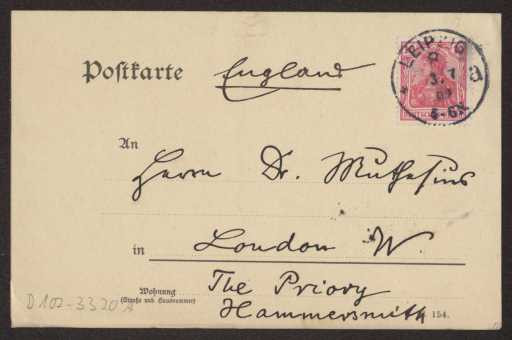 Postkarte England
LEIPZIG
3. 1
5-6N
a
An
Herrn Dr. Muthesius
in London W.
Wohnung
(Straße und Hausnummer)
The Priory
Hammersmith
154.
D 102-3320 A